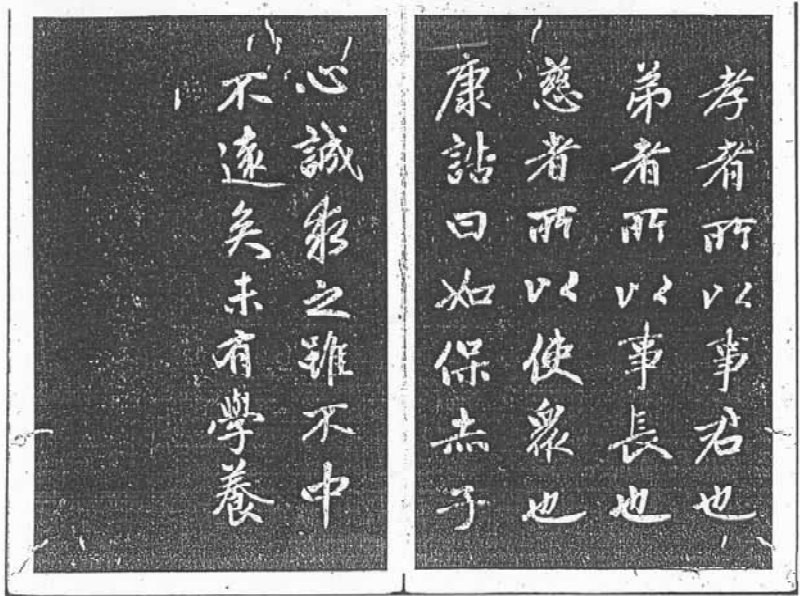 孝者所以事君也
弟者所以事長也
慈者所以使衆也
康誥曰如保赤子
心誠求之雖不中
不遠矣未有學養